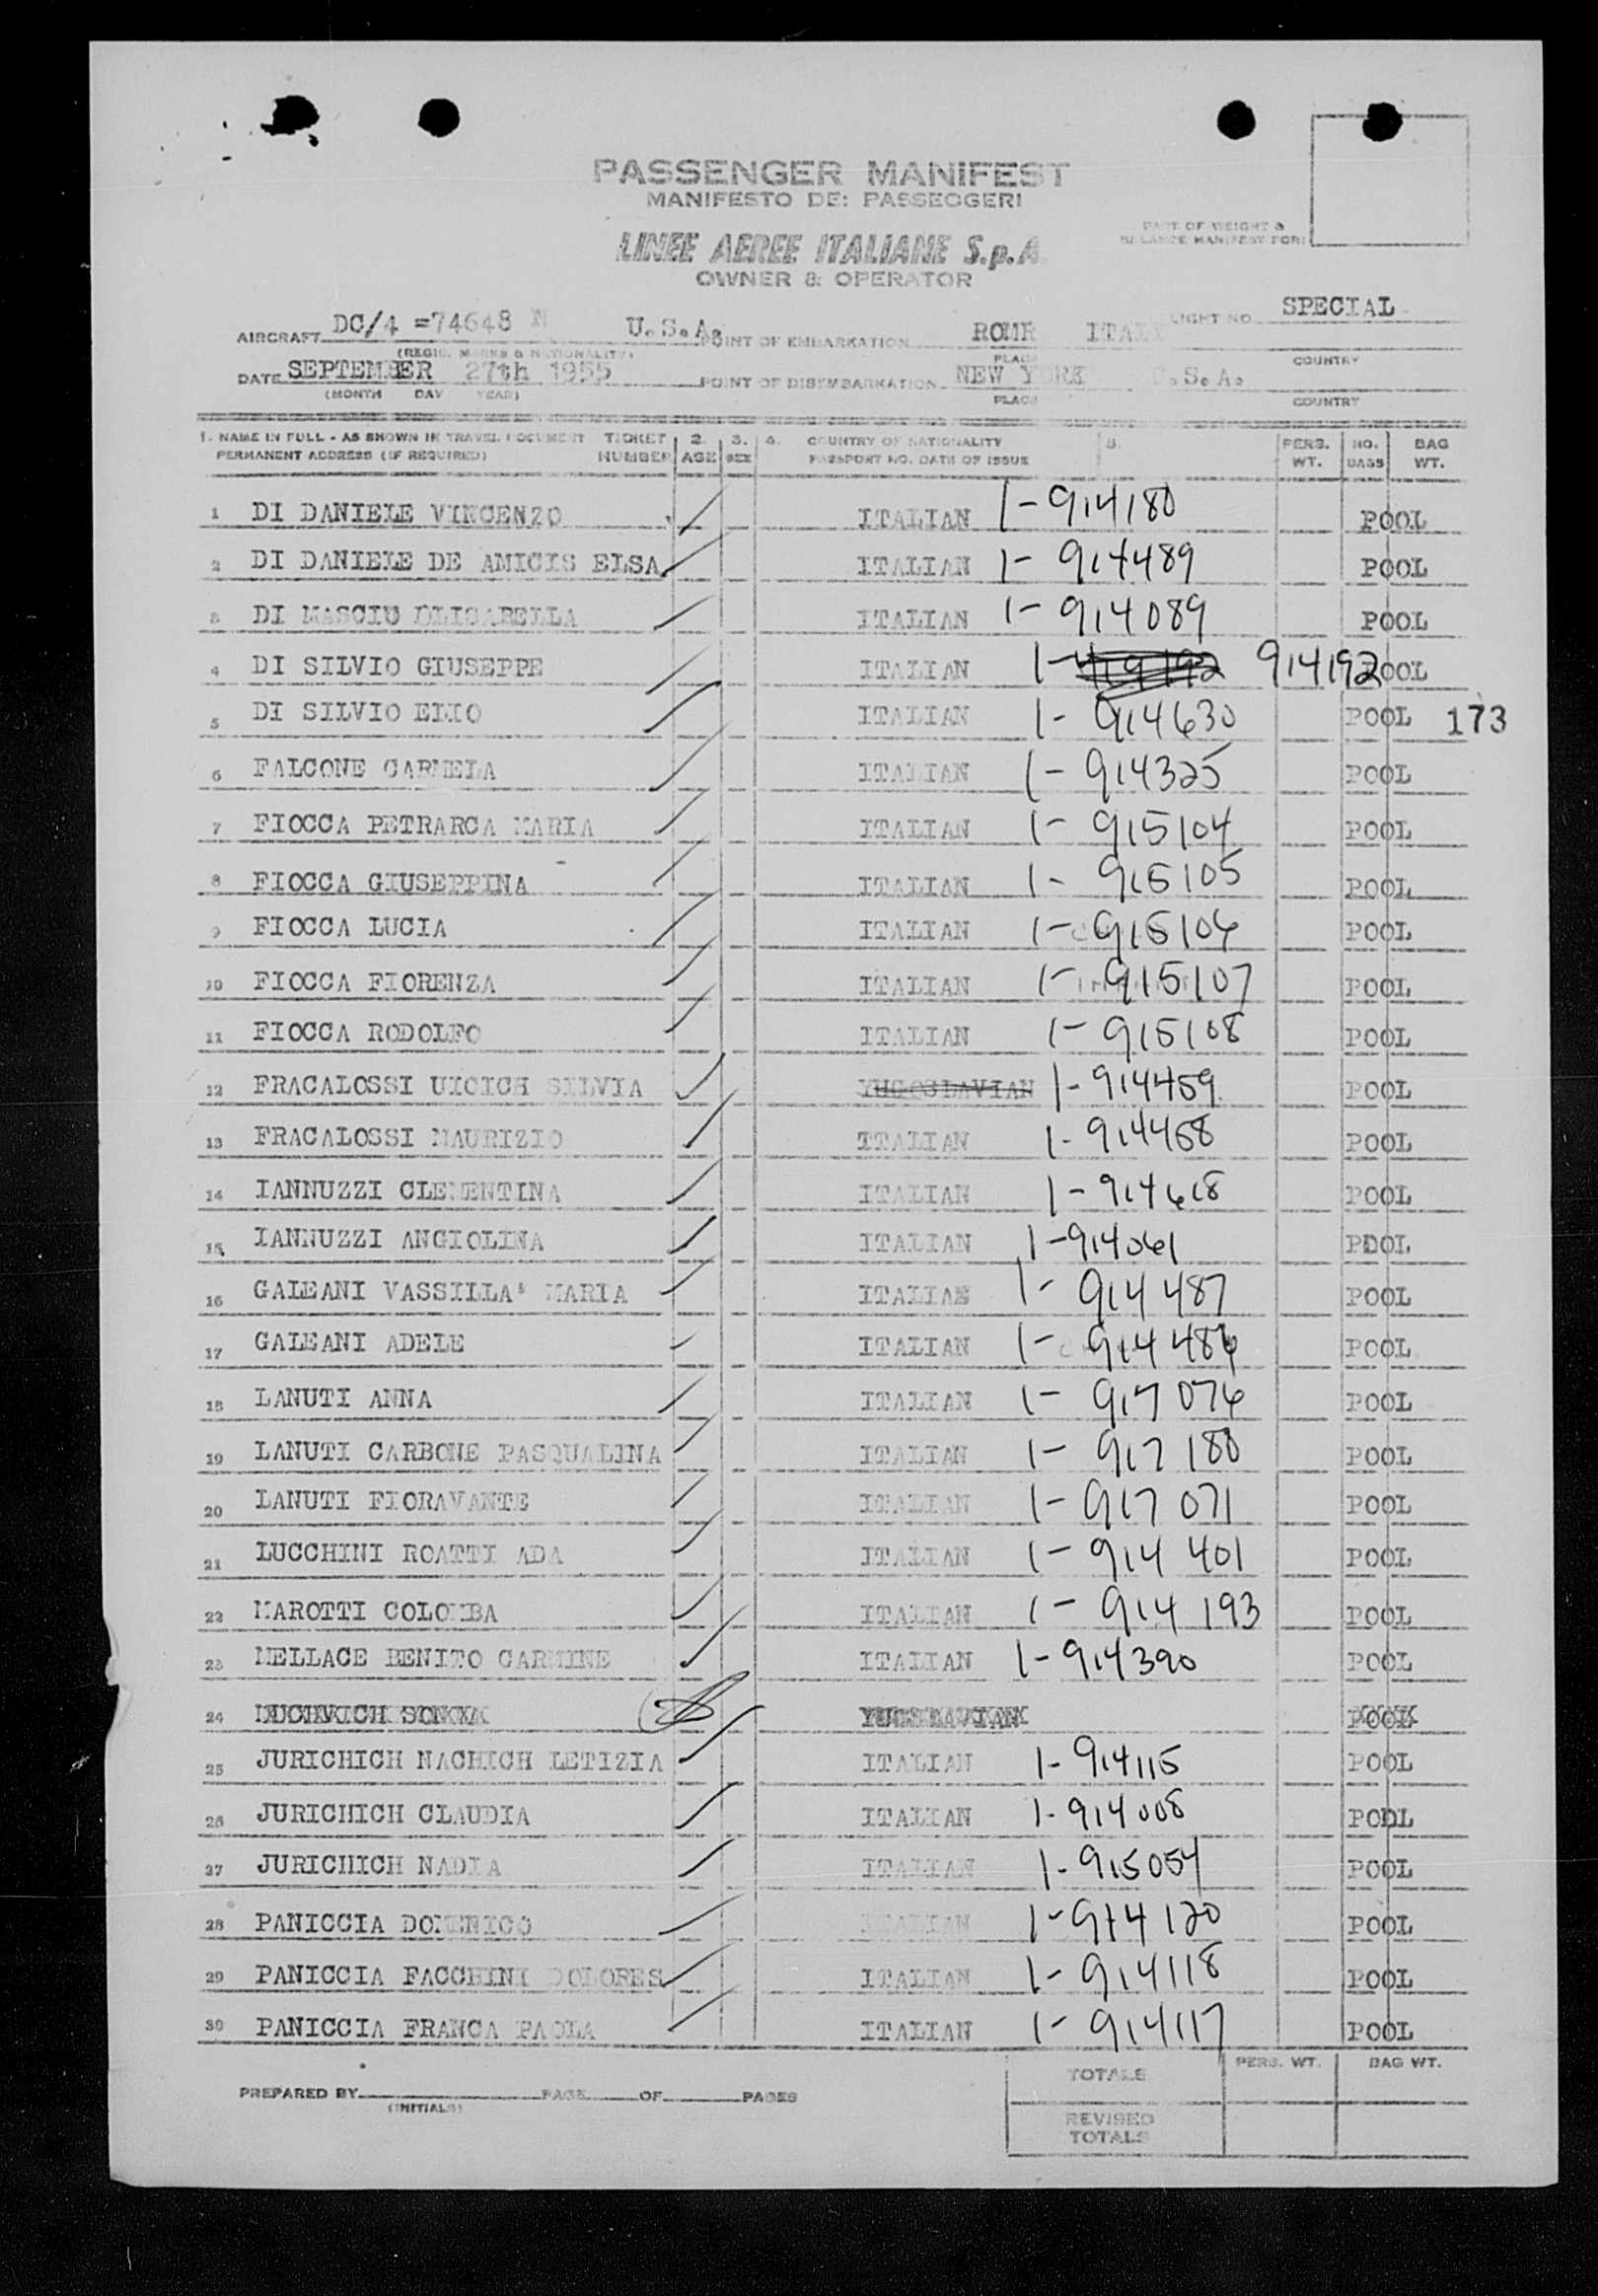 PASSENGER MANIFEST
MANIFESTO DE: PASSEGGERI
LINEE AEREE ITALIANE S.p.A
OWNER & OPERATOR
PART OF WEIGHT &
BALANCE MANIFEST FOR:
AIRCRAFT DC/4 =74648 N U.S.A. POINT OF EMBARKATION ROMR ITALY FLIGHT NO. SPECIAL
(REGIS. MARKS & NATIONALITY) PLACE COUNTRY
DATE SEPTEMBER 27th 1955 POINT OF DISEMBARKATION NEW YORK U.S.A.
(MONTH DAY YEAR) PLACE COUNTRY
1. NAME IN FULL - AS SHOWN IN TRAVEL DOCUMENT TICKET 2. 3. 4. COUNTRY OF NATIONALITY 5. PERS. NO. BAG
PERMANENT ADDRESS (IF REQUIRED) NUMBER AGE SEX PASSPORT NO. DATE OF ISSUE WT. BAGS WT.
1 DI DANIELE VINCENZO ITALIAN 1-914180 POOL
2 DI DANIELE DE AMICIS ELSA ITALIAN 1-914489 POOL
3 DI MASCIO ITALIAN 1-914089 POOL
4 DI SILVIO GIUSEPPE ITALIAN 1- 914192 POOL
5 DI SILVIO ELIO ITALIAN 1-914630 POOL 173
6 FALCONE CARMELA ITALIAN 1-914325 POOL
7 FIOCCA PETRARCA MARIA ITALIAN 1-915104 POOL
8 FIOCCA GIUSEPPINA ITALIAN 1-915105 POOL
9 FIOCCA LUCIA ITALIAN 1-915106 POOL
10 FIOCCA FIORENZA ITALIAN 1-915107 POOL
11 FIOCCA RODOLFO ITALIAN 1-915108 POOL
12 FRACALOSSI UICICH SILVIA YUGOSLAVIAN 1-914459 POOL
13 FRACALOSSI MAURIZIO ITALIAN 1-914458 POOL
14 IANNUZZI CLEMENTINA ITALIAN 1-914618 POOL
15 IANNUZZI ANGIOLINA ITALIAN 1-914061 POOL
16 GALEANI VASSILLA' MARIA ITALIAN 1-914487 POOL
17 GALEANI ADELE ITALIAN 1-914486 POOL
18 LANUTI ANNA ITALIAN 1-917076 POOL
19 LANUTI CARBONE PASQUALINA ITALIAN 1-917180 POOL
20 LANUTI FIORAVANTE ITALIAN 1-917071 POOL
21 LUCCHINI ROATTI ADA ITALIAN 1-914401 POOL
22 MAROTTI COLOMBA ITALIAN 1-914193 POOL
23 MELLACE BENITO CARMINE ITALIAN 1-914390 POOL
24
25 JURICHICH NACHICH LETIZIA ITALIAN 1-914115 POOL
26 JURICHICH CLAUDIA ITALIAN 1-914008 POOL
27 JURICHICH NADIA ITALIAN 1-915054 POOL
28 PANICCIA DOMENICO ITALIAN 1-914120 POOL
29 PANICCIA FACCHINI DOLORES ITALIAN 1-914118 POOL
30 PANICCIA FRANCA PAOLA ITALIAN 1-914117 POOL
TOTALS PERS. WT. BAG WT.
PREPARED BY PAGE OF PAGES
(INITIALS)
REVISED
TOTALS